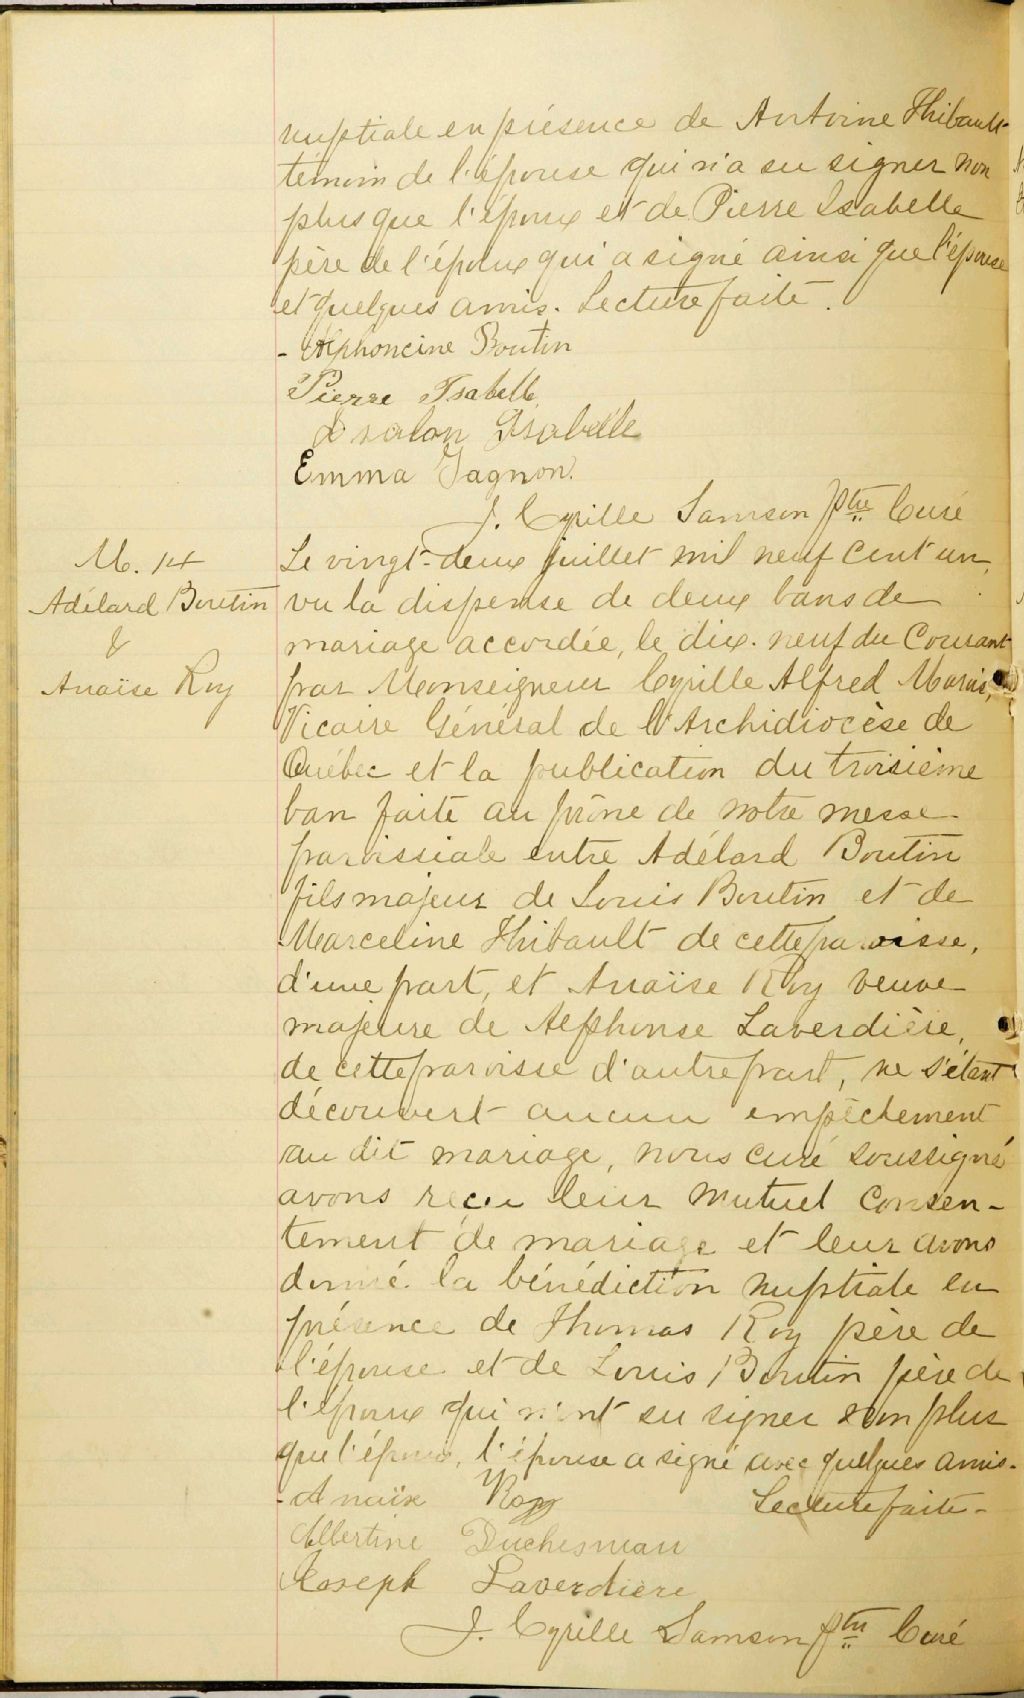 nuptiale en présence de Antoine Thibault
témoin de l'épouse qui n'a su signer non
plus que l'époux et de Pierre Isabelle
père de l'époux qui a signé ainsi que l'épouse
et quelques amis. Lecture faite.
- Alphoncine Boutin
Pierre Isabelle
Isabelle
Emma Gagnon.
J. Cyrille Samson Ptre Curé
M. 14
Adélard Boutin
&
Anaïse Roy
Le vingt-deux juillet mil neuf cent un,
vu la dispense de deux bans de
mariage accordée, le dix-neuf du Courant
par Monseigneur Cyrille Alfred Marois,
Vicaire Général de l'Archidiocèse de
Québec et la publication du troisième
ban faite au prône de notre messe
paroissiale entre Adélard Boutin
fils majeur de Louis Boutin et de
Marceline Thibault de cette paroisse,
d'une part, et Anaïse Roy veuve
majeure de Alphonse Laverdière,
de cette paroisse d'autre part, ne s'étant
découvert aucun empêchement
au dit mariage, nous curé soussigné
avons reçu leur mutuel consen-
tement de mariage et leur avons
donné la bénédiction nuptiale en
présence de Thomas Roy père de
l'épouse et de Louis Boutin père de
l'époux qui n'ont su signer non plus
que l'époux, l'épouse a signé avec quelques amis.
- Anaïx Roy Lecture faite -
Albertine Duchesneau
Joseph Laverdiere
J. Cyrille Samson Ptre Curé